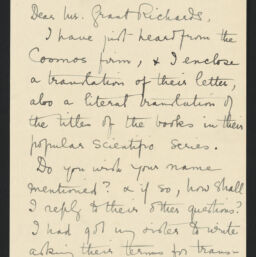 Dear Mr. Grant Richards,
I have just heard from the
Cosmos firm, & I enclose
a translation of their letter,
also a literal translation of
the titles of the books in their
popular Scientific Series.
Do you wish your name
mentioned? & if so, how shall
I reply to their other questions?
I had got my sister to write
asking their terms for trans-